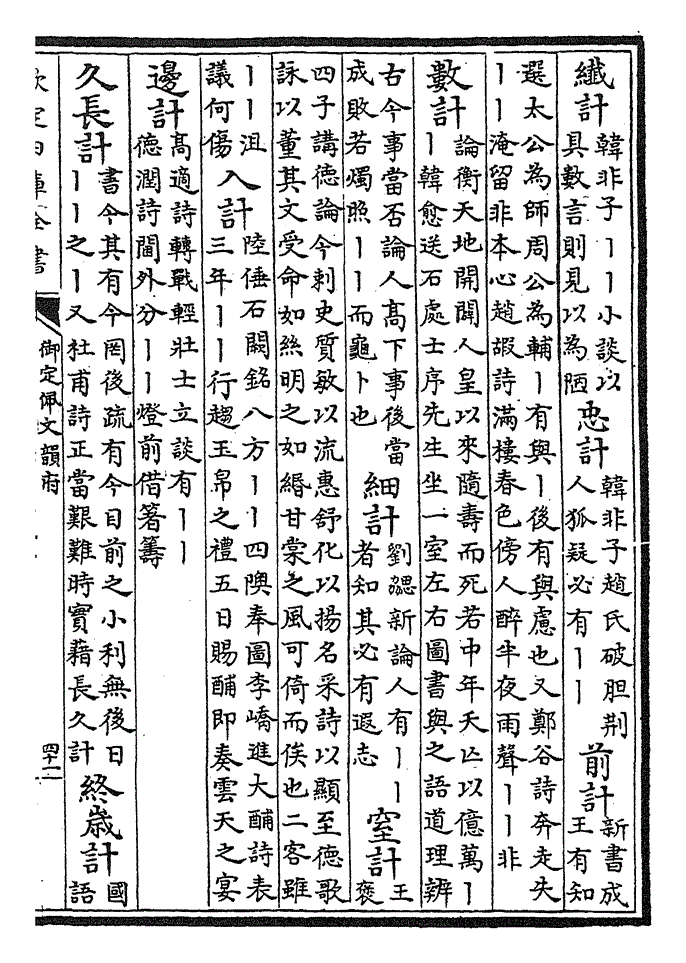 纎計韓非子丨丨小談以
具數言則見以為陋
忠計韓非子趙氏破胆荆
人狐疑必有丨丨
前計新書成
王有知
選太公為師周公為輔丨有與丨後有與慮也又鄭谷詩奔走失
丨丨淹留非本心趙嘏詩滿樓春色傍人醉半夜雨聲丨丨非
數計論衡天地開闢人皇以來隨壽而死若中年夭亡以億萬丨
丨韓愈送石處士序先生坐一室左右圖書與之語道理辨
古今事當否論人髙下事後當
成敗若燭照丨丨而龜卜也
細計劉勰新論人有丨丨
者知其必有遐志
窒計王
褒
四子講徳論今刺史質敏以流惠舒化以揚名采詩以顯至徳歌
詠以董其文受命如絲明之如緡甘棠之風可倚而俟也二客雖
丨丨沮
議何傷
入計陸倕石闕銘八方丨丨四隩奉圖李嶠進大酺詩表
三年丨丨行趨玉帛之禮五日賜酺即奏雲天之宴
邊計髙適詩轉戰輕壯士立談有丨丨
徳潤詩閫外分丨丨燈前借箸籌
久長計書今其有今罔後疏有今日前之小利無後日
丨丨之丨又杜甫詩正當艱難時實藉長久計
終歳計國
語
欽定四庫全書
御定佩文韻府
四十二